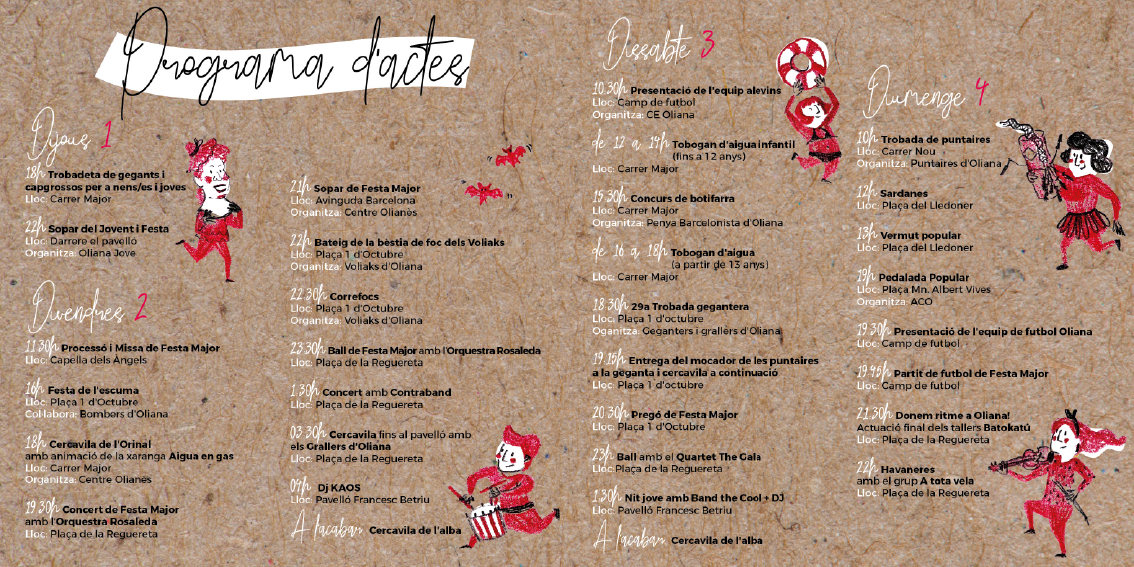 Programa d'actes
Dijous 1
18h Trobadeta de gegants i
capgrossos per a nens/es i joves
Lloc: Carrer Major
22h Sopar del Jovent i Festa
Lloc: Darrere el pavelló
Organitza: Oliana Jove
Divendres 2
11'30h Processó i Missa de Festa Major
Lloc: Capella dels Àngels
16h Festa de l'escuma
Lloc: Plaça 1 d'Octubre
Col·labora: Bombers d'Oliana
18h Cercavila de l'Orinal
amb animació de la xaranga Aigua en gas
Lloc: Carrer Major
Organitza: Centre Olianès
19'30h Concert de Festa Major
amb l'Orquestra Rosaleda
Lloc: Plaça de la Reguereta
21h Sopar de Festa Major
Lloc: Avinguda Barcelona
Organitza: Centre Olianès
22h Bateig de la bèstia de foc dels Voliaks
Lloc: Plaça 1 d'Octubre
Organitza: Voliaks d'Oliana
22'30h Correfocs
Lloc: Plaça 1 d'Octubre
Organitza: Voliaks d'Oliana
23'30h Ball de Festa Major amb l'Orquestra Rosaleda
Lloc: Plaça de la Reguereta
1'30h Concert amb Contraband
Lloc: Plaça de la Reguereta
03'30h Cercavila fins al pavelló amb
els Grallers d'Oliana
Lloc: Plaça de la Reguereta
04h Dj KAOS
Lloc: Pavelló Francesc Betriu
A l'acabar Cercavila de l'alba
Dissabte 3
10'30h Presentació de l'equip alevins
Lloc: Camp de futbol
Organitza: CE Oliana
de 12 a 14h Tobogan d'aigua infantil
(fins a 12 anys)
Lloc: Carrer Major
15'30h Concurs de botifarra
Lloc: Carrer Major
Organitza: Penya Barcelonista d'Oliana
de 16 a 18h Tobogan d'aigua
(a partir de 13 anys)
Lloc: Carrer Major
18'30h 29a Trobada gegantera
Lloc: Plaça 1 d'octubre
Oganitza: Geganters i grallers d'Oliana
19'15h Entrega del mocador de les puntaires
a la geganta i cercavila a continuació
Lloc: Plaça 1 d'octubre
20'30h Pregó de Festa Major
Lloc: Plaça 1 d'Octubre
23h Ball amb el Quartet The Gala
Lloc: Plaça de la Reguereta
1'30h Nit jove amb Band the Cool + DJ
Lloc: Pavelló Francesc Betriu
A l'acabar Cercavila de l'alba
Diumenge 4
10h Trobada de puntaires
Lloc: Carrer Nou
Organitza: Puntaires d'Oliana
12h Sardanes
Lloc: Plaça del Lledoner
13h Vermut popular
Lloc: Plaça del Lledoner
19h Pedalada Popular
Lloc: Plaça Mn. Albert Vives
Organitza: ACO
19'30h Presentació de l'equip de futbol Oliana
Lloc: Camp de futbol
19'45h Partit de futbol de Festa Major
Lloc: Camp de futbol
21'30h Donem ritme a Oliana!
Actuació final dels tallers Batokatú
Lloc: Plaça de la Reguereta
22h Havaneres
amb el grup A tota vela
Lloc: Plaça de la Reguereta